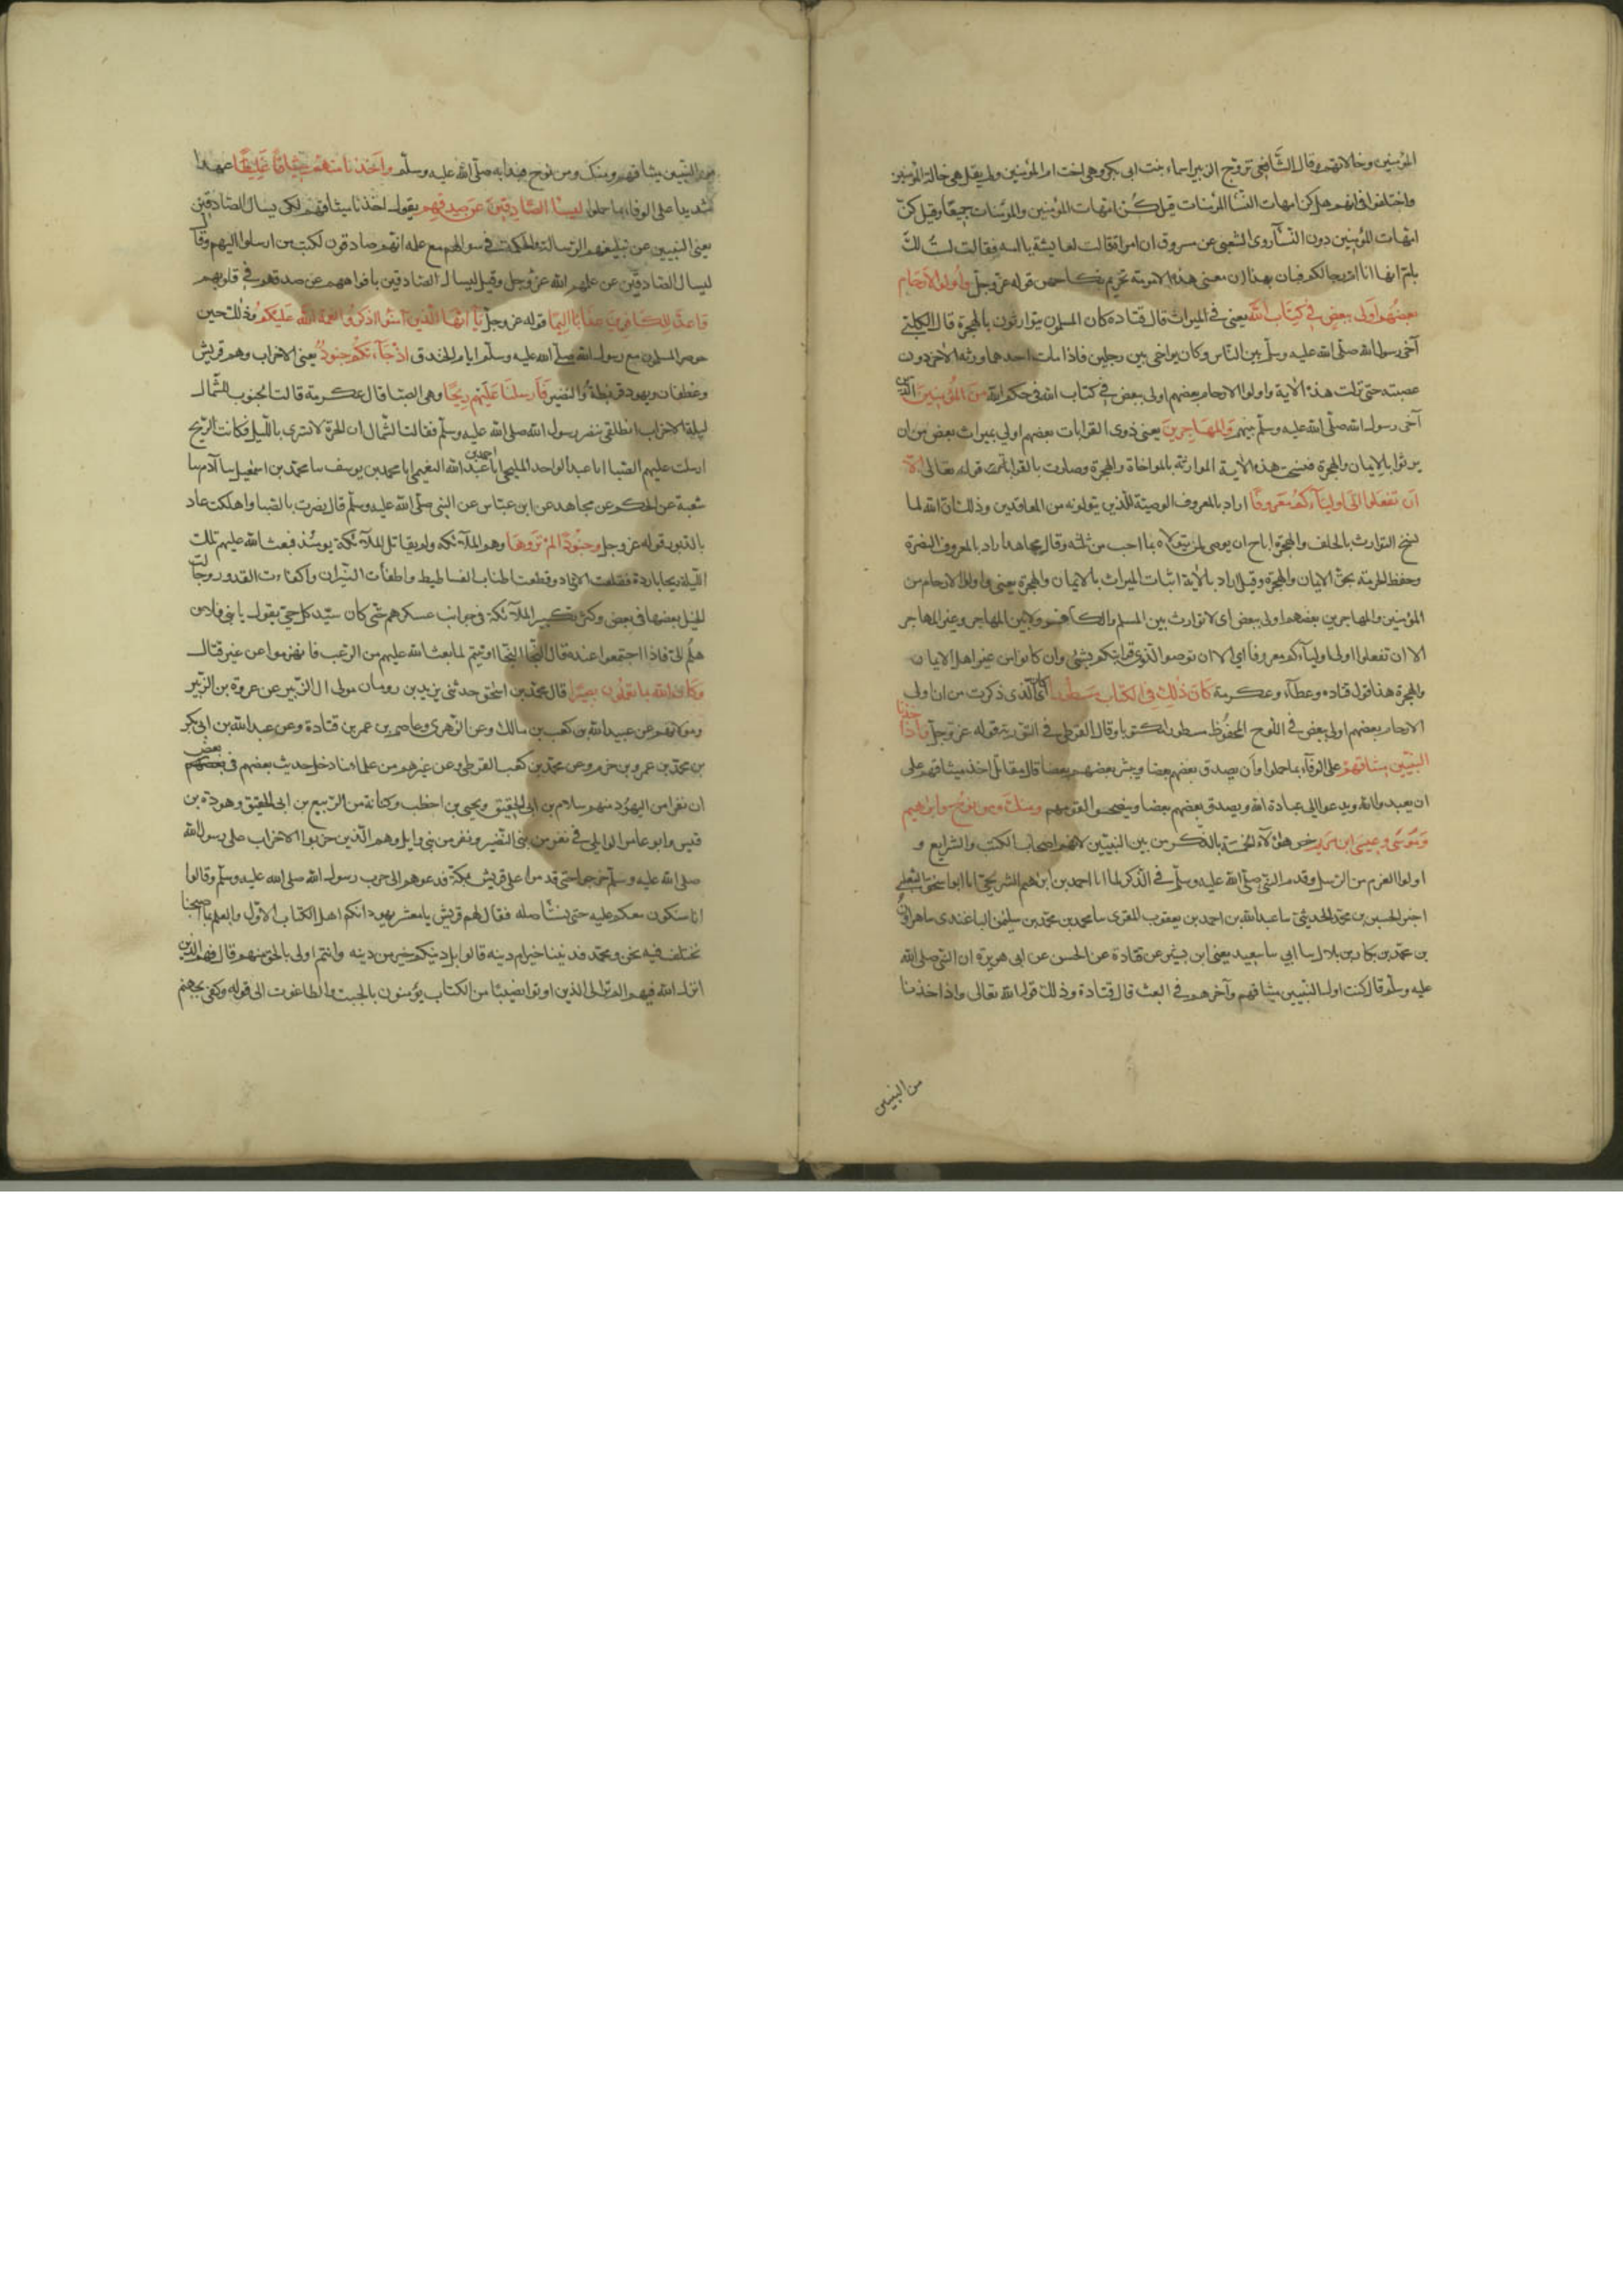 المؤمنين وخالاتهم قال الشافعي تزوج الزبير اسماء بنت ابى بكر وهى اخت ام المؤمنين ولم يقل هى خالة المؤمنين
واختلفوا فى انهم هل كن امهات النسآ المؤمنات قيل كن امهات المؤمنين والمؤمنات جميعًا وقيل كن
امهات المؤمنين دون النسآ روى الشعبى عن مسروق ان امراة قالت لعايشة يا امه فقالت لست لك
بام انما انا ام رجالكم فبان بهذا ان معنى هذه الامومة تحريم نكاحهن قوله عز وجل واولوا الارحام
بعضهم اولى ببعض فى كتاب الله يعنى فى الميراث قال قتاده كان المسلمون يتوارثون بالهجرة قال الكلبى
آخى رسول الله صلى الله عليه وسلم بين الناس وكان يواخى بين رجلين فاذا مات احدهما ورثه الاخر دون
عصبته حتى نزلت هذه الاية واولوا الارحام بعضهم اولى ببعض فى كتاب الله فى حكم الله من المؤمنين الذين
آخى رسول الله صلى الله عليه وسلم بينهم والمهاجرين يعنى ذوى القرابات بعضهم اولى بميراث بعض من ان
يرثوا بالايمان والهجرة فنسخت هذه الاية الموارثة بالمواخاة والهجرة وصارت بالقرابة قوله تعالى الا
ان تفعلوا الى اوليآءكم معروفًا اراد بالمعروف الوصية للذين يتولونه من المعاقدين وذلك ان الله لما
نسخ التوارث بالحلف والهجرة اباح ان يوصى لمن يتولاه بما احب من ثلثه وقال مجاهد اراد بالمعروف النصرة
وحفظ الحرمة بحق الايمان والهجرة وقيل اراد بالاية اثبات الميراث بالايمان والهجرة يعنى واولوا الارحام من
المؤمنين والمهاجرين بعضهم اولى ببعض اى لا توارث بين المسلم والكافر ولا بين المهاجر وغير المهاجر
الا ان تفعلوا الى اوليآءكم معروفا اى الا ان توصوا لذوى قرابتكم بشئ وان كانوا من غير اهل الايمان
والهجرة هذا قول قتاده وعطآء وعكرمة كان ذلك فى الكتاب مسطورا اى كان الذى ذكرت من ان اولى
الارحام بعضهم اولى ببعض فى اللوح المحفوظ مسطورا مكتوبا وقال القرظى فى التورية قوله عز وجل واذ اخذنا
النبيين ميثاقهم على الوفآء بما حملوا وان يصدق بعضهم بعضا ويبشر بعضهم ببعض قال مقاتل اخذ ميثاقهم على
ان يعبدوا الله ويدعوا الى عبادة الله ويصدق بعضهم بعضا وينصحوا لقومهم ومنك ومن نوح وابراهيم
وموسى وعيسى ابن مريم خص هؤلآء الخمسة بالذكر من بين النبيين لانهم اصحاب الكتب والشرايع و
اولوا العزم من الرسل وقدم النبى صلى الله عليه وسلم فى الذكر لما انا احمد بن ابرهيم الشريحى انا ابو اسحق الثعلبى
اخبرنى الحسين بن محمد الحديثى سا عبد الله بن احمد بن يعقوب المقرى سا محمد بن محمد بن سليمن الباغندى سا هرون
بن محمد بن بكار بن بلال سا ابى سا سعيد يعنى ابن بشير عن قتادة عن الحسن عن ابى هريرة ان النبى صلى الله
عليه وسلم قال كنت اول النبيين ميثاقهم وآخرهم فى البعث قال قتادة وذلك قول الله تعالى واذ اخذنا
من النبيين
من النبيين ميثاقهم ومنك ومن نوح فبدا به صلى الله عليه وسلم واخذنا منهم ميثاقًا غليظًا عهدا
شديدا على الوفاء بما حملوا ليسئل الصادقين عن صدقهم يقول اخذنا ميثاقهم لكى يسال الصادقين
يعنى النبيين عن تبليغهم الرسالة والحكمة فى سوالهم مع علمه انهم صادقون تبكيت من ارسلوا اليهم وقيل
ليسال الصادقين عن عملهم لله عز وجل وقيل ليسال الصادقين بافواههم عن صدقهم فى قلوبهم
واعد للكافرين عذابا اليما قوله عز وجل يا ايها الذين آمنوا اذكروا نعمة الله عليكم وذلك حين
حوصر المسلمون مع رسول الله صلى الله عليه وسلم ايام الخندق اذ جآءتكم جنود يعنى الاحزاب وهم قريش
وغطفان ويهود قريظة والنضير فارسلنا عليهم ريحًا وهى الصبا قال عكرمة قالت الجنوب للشمال
ليلة الاحزاب انطلقى ننصر رسول الله صلى الله عليه وسلم فقالت الشمال ان الحرة لا تسرى بالليل فكانت الريح
ارسلت عليهم الصبا انا عبد الواحد المليحى انا احمد بن عبد الله النعيمى انا محمد بن يوسف سا محمد بن اسمعيل سا آدم سا
شعبة عن الحكم عن مجاهد عن ابن عباس عن النبى صلى الله عليه وسلم قال نصرت بالصبا واهلكت عاد
بالدبور قوله عز وجل وجنودًا لم تروها وهم الملآئكة ولم يقاتل الملآئكة يومئذ فبعث الله عليهم تلك
الليلة ريحا باردة فقلعت الاوتاد وقطعت اطناب الفساطيط واطفأت النيران واكفاءت القدور وجالت
الخيل بعضها فى بعض وكثر تكبير الملآئكة فى جوانب عسكرهم حتى كان سيد كل حى يقول يا بنى فلان
هلم الى فاذا اجتمعوا عنده قال النجا النجا اوتيتم لما بعث الله عليهم من الرعب فانهزموا عن غير قتال
وكان الله بما تعملون بصيرا قال محمد بن اسحق حدثنى يزيد بن رومان مولى ال الزبير عن عروة بن الزبير
ومن لا اتهم عن عبيد الله بن كعب بن مالك وعن الزهرى وعاصم بن عمر بن قتادة وعن عبد الله بن ابى بكر
بن محمد بن عمرو بن حزم وعن محمد بن كعب القرظى وعن غيرهم من علمائنا دخل حديث بعضهم فى بعض
ان نفرا من اليهود منهم سلام بن ابى الحقيق ويحيى بن اخطب وكنانة بن الربيع بن ابى الحقيق وهوذة بن
قيس وابو عامر الوايلى فى نفر من بنى النضير ونفر من بنى وايل وهم الذين حزبوا الاحزاب على رسول الله
صلى الله عليه وسلم خرجوا حتى قدموا على قريش بمكة فدعوهم الى حرب رسول الله صلى الله عليه وسلم وقالوا
انا سنكون معكم عليه حتى نستاصله فقال لهم قريش يا معشر يهود انكم اهل الكتاب الاول والعلم بما اصبحنا
نختلف فيه نحن ومحمد فديننا خير ام دينه قالوا بل دينكم خير من دينه وانتم اولى بالحق منهم قال فهم الذين
انزل الله فيهم الم تر الى الذين اوتوا نصيبًا من الكتاب يؤمنون بالجبت والطاغوت الى قوله وكفى بجهنم